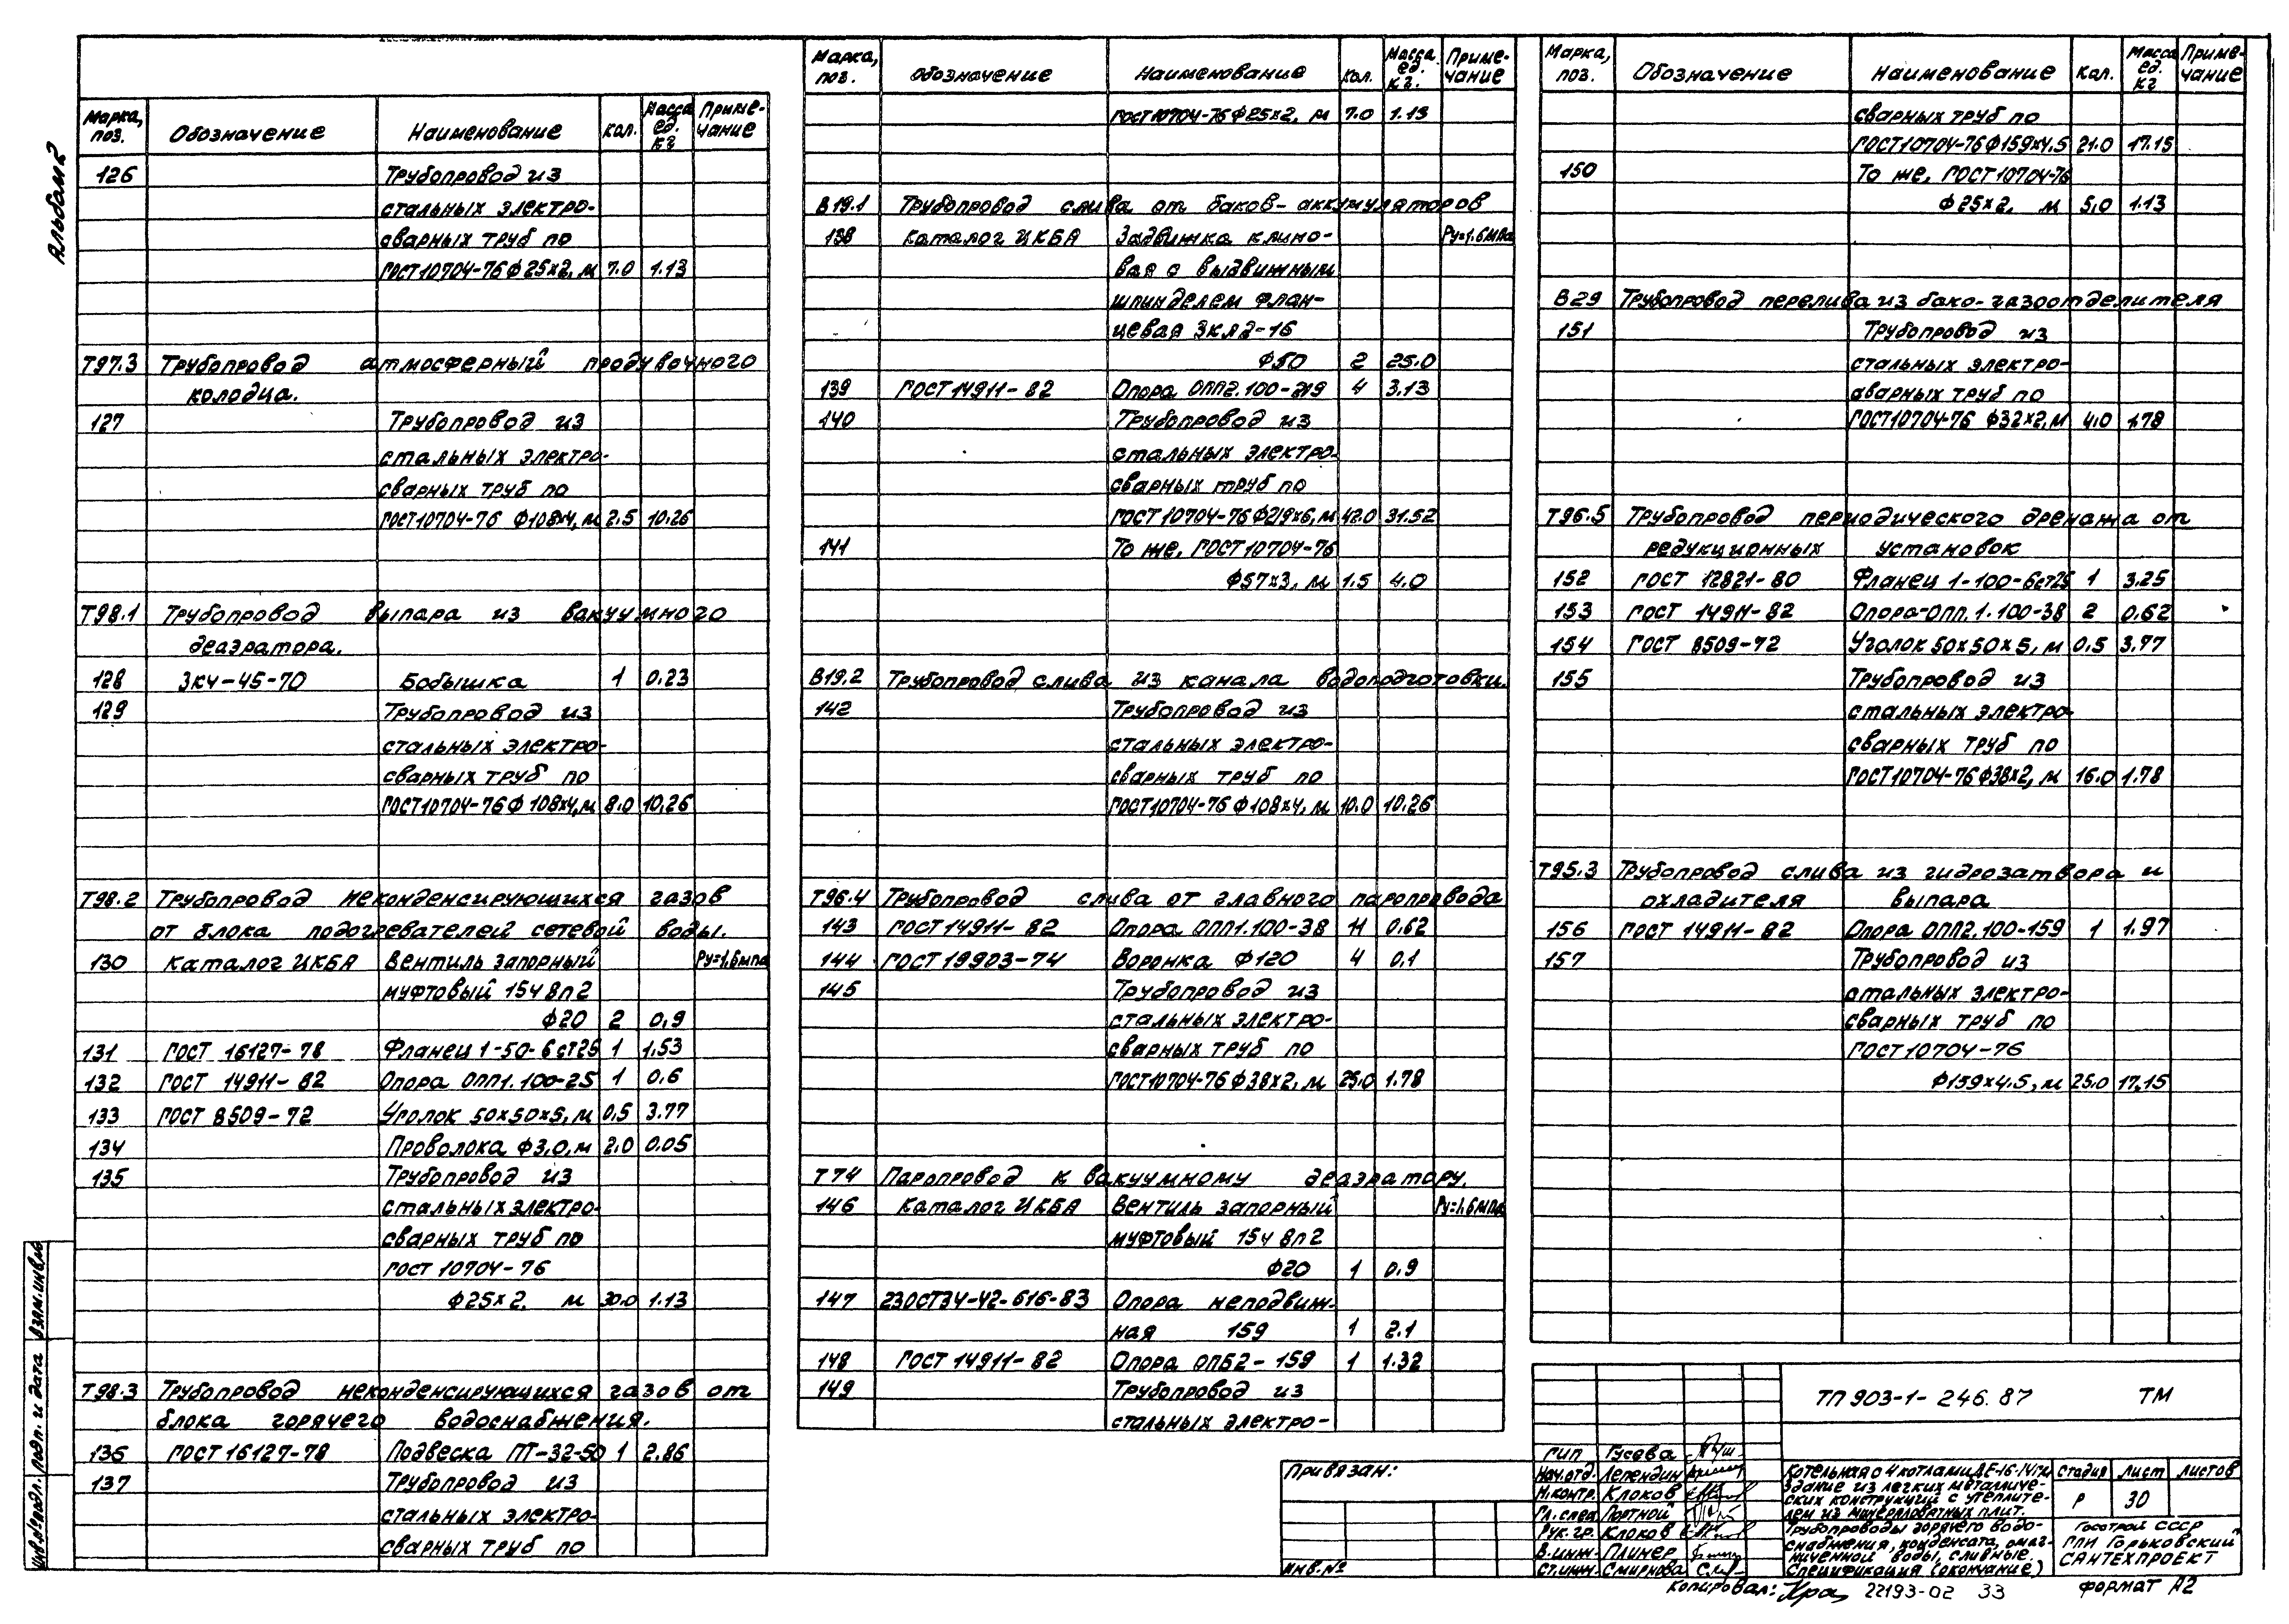 Альбом 2
Марка, поз. Обозначение Наименование Кол. Масса ед. кг Приме-чание
126 Трубопровод из
стальных электро-
сварных труб по
ГОСТ10704-76 Ф25х2, м 7.0 1.13
Т97.3 Трубопровод атмосферный продувочного
колодца.
127 Трубопровод из
стальных электро-
сварных труб по
ГОСТ10704-76 Ф108х4, м 2.5 10.26
Т98.1 Трубопровод выпара из вакуумного
деаэратора.
128 ЗК4-45-70 Бобышка 1 0.23
129 Трубопровод из
стальных электро-
сварных труб по
ГОСТ10704-76 Ф108х4, м 8.0 10.26
Т98.2 Трубопровод неконденсирующихся газов
от блока подогревателей сетевой воды.
130 Каталог ЦКБА Вентиль запорный Ру=1,6мпа
муфтовый 15ч8п2
Ф20 2 0,9
131 ГОСТ 16127-78 Фланец 1-50-6 ст25 1 1.53
132 ГОСТ 14911-82 Опора ОПП1.100-25 1 0.6
133 ГОСТ 8509-72 Уголок 50х50х5, м 0,5 3.77
134 Проволока Ф3,0, м 2.0 0.05
135 Трубопровод из
стальных электро-
сварных труб по
ГОСТ 10704-76
Ф25х2, м 30.0 1.13
Т98.3 Трубопровод неконденсирующихся газов от
блока горячего водоснабжения.
136 ГОСТ 16127-78 Подвеска ПТ-32-50 1 2.86
137 Трубопровод из
стальных электро-
сварных труб по
Марка, поз. Обозначение Наименование Кол. Масса ед. кг. Приме-чание
ГОСТ10704-76 Ф25х2, м 7.0 1.13
В19.1 Трубопровод слива от баков-аккумуляторов
138 Каталог ЦКБА Задвижка клино- Ру=1.6мпа
вая с выдвижным
шпинделем флан-
цевая ЗКЛ2-16
Ф50 2 25.0
139 ГОСТ 14911-82 Опора ОПП2.100-219 4 3.13
140 Трубопровод из
стальных электро-
сварных труб по
ГОСТ 10704-76 Ф219х6, м 42.0 31.52
141 То же, ГОСТ 10704-76
Ф57х3, м 1.5 4.0
В19.2 Трубопровод слива из канала водоподготовки.
142 Трубопровод из
стальных электро-
сварных труб по
ГОСТ10704-76 Ф108х4, м 10.0 10.26
Т96.4 Трубопровод слива от главного паропровода
143 ГОСТ 14911-82 Опора ОПП1.100-38 11 0.62
144 ГОСТ 19903-74 Воронка Ф120 4 0,1
145 Трубопровод из
стальных электро-
сварных труб по
ГОСТ10704-76 Ф38х2, м 25.0 1.78
Т74 Паропровод к вакуумному деаэратору.
146 Каталог ЦКБА Вентиль запорный Ру=1,6мпа
муфтовый 15ч8п2
Ф20 1 0.9
147 23ОСТ34-42-616-83 Опора неподвиж-
ная 159 1 2.1
148 ГОСТ 14911-82 Опора ОПБ2-159 1 1.32
149 Трубопровод из
стальных электро-
Марка, поз. Обозначение Наименование Кол. Масса ед. кг Приме-чание
сварных труб по
ГОСТ10704-76 Ф159х4.5 21.0 17.15
150 То же, ГОСТ 10704-76
Ф25х2, м 5,0 1.13
В29 Трубопровод перелива из бака-газоотделителя
151 Трубопровод из
стальных электро-
сварных труб по
ГОСТ10704-76 Ф32х2, м 4.0 1.78
Т96.5 Трубопровод периодического дренажа от
редукционных установок
152 ГОСТ 12821-80 Фланец 1-100-6ст25 1 3.25
153 ГОСТ 14911-82 Опора-ОПП.1.100-38 2 0.62
154 ГОСТ 8509-72 Уголок 50х50х5, м 0,5 3.77
155 Трубопровод из
стальных электро-
сварных труб по
ГОСТ10704-76 Ф38х2, м 16.0 1.78
Т95.3 Трубопровод слива из гидрозатвора и
охладителя выпара
156 ГОСТ 14911-82 Опора ОПП2.100-159 1 1.97
157 Трубопровод из
стальных электро-
сварных труб по
ГОСТ 10704-76
Ф159х4.5, м 25.0 17.15
Инв.№подл. Подп. и дата Взам.инв.№
Привязан:
Инв.№
ТП 903-1-246.87 ТМ
ГИП Гусева
Нач.отд. Лепендин
Н.контр. Клоков
Гл.спец. Портной
Рук.гр. Клоков
В.инж. Плинер
Ст.инж. Смирнова
Котельная с 4 котлами ДЕ-16-14гм
Здание из легких металличе-
ских конструкций с утеплите-
лем из минераловатных плит.
Стадия Лист Листов
Р 30
Трубопроводы горячего водо-
снабжения, конденсата, омаг-
ниченной воды, сливные.
Спецификация (окончание)
Госстрой СССР
ГПИ Горьковский
САНТЕХПРОЕКТ
Копировал: 22193-02 33 Формат А2